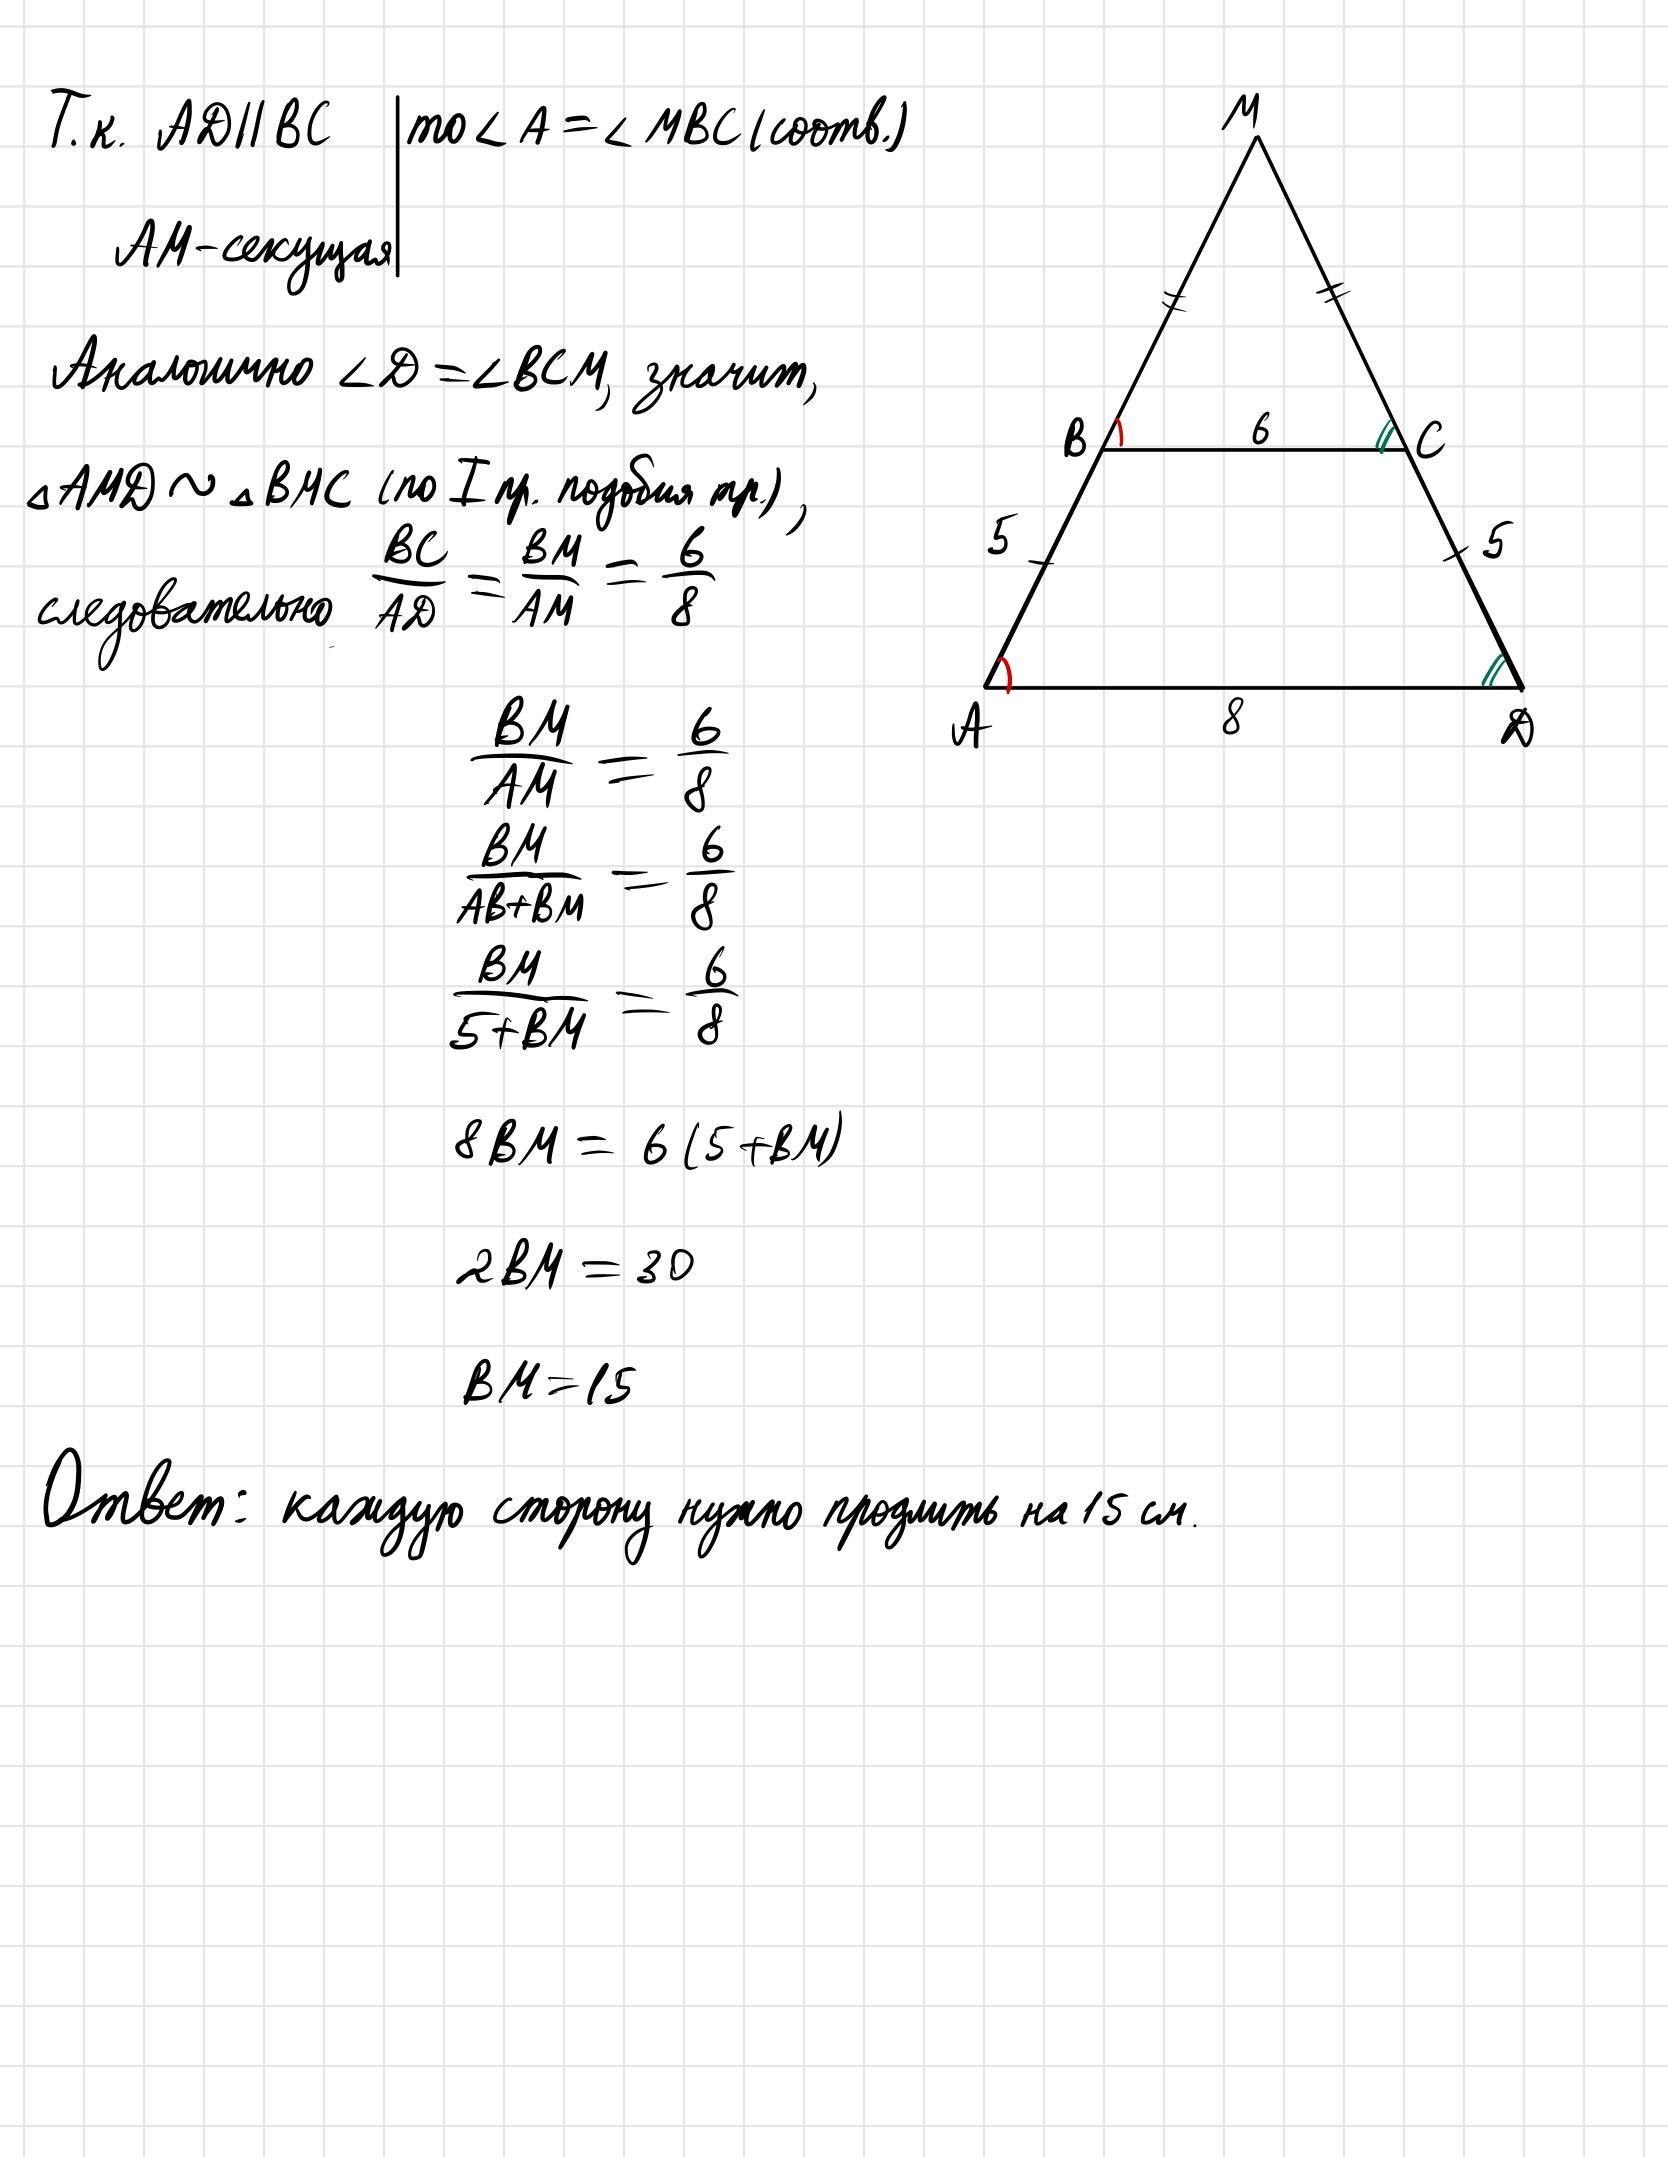 Т.к. AD||BC | то ∠A = ∠MBC (соотв.)
AM-секущая
Аналогично ∠D = ∠BCM, значит,
△AMD ~ △BMC (по I пр. подобия тр.),
следовательно BC/AD = BM/AM = 6/8
BM/AM = 6/8
BM/AB+BM = 6/8
BM/5+BM = 6/8
8BM = 6(5+BM)
2BM = 30
BM = 15
Ответ: каждую сторону нужно продлить на 15 см.
M
B 6 C
5 5
A 8 D